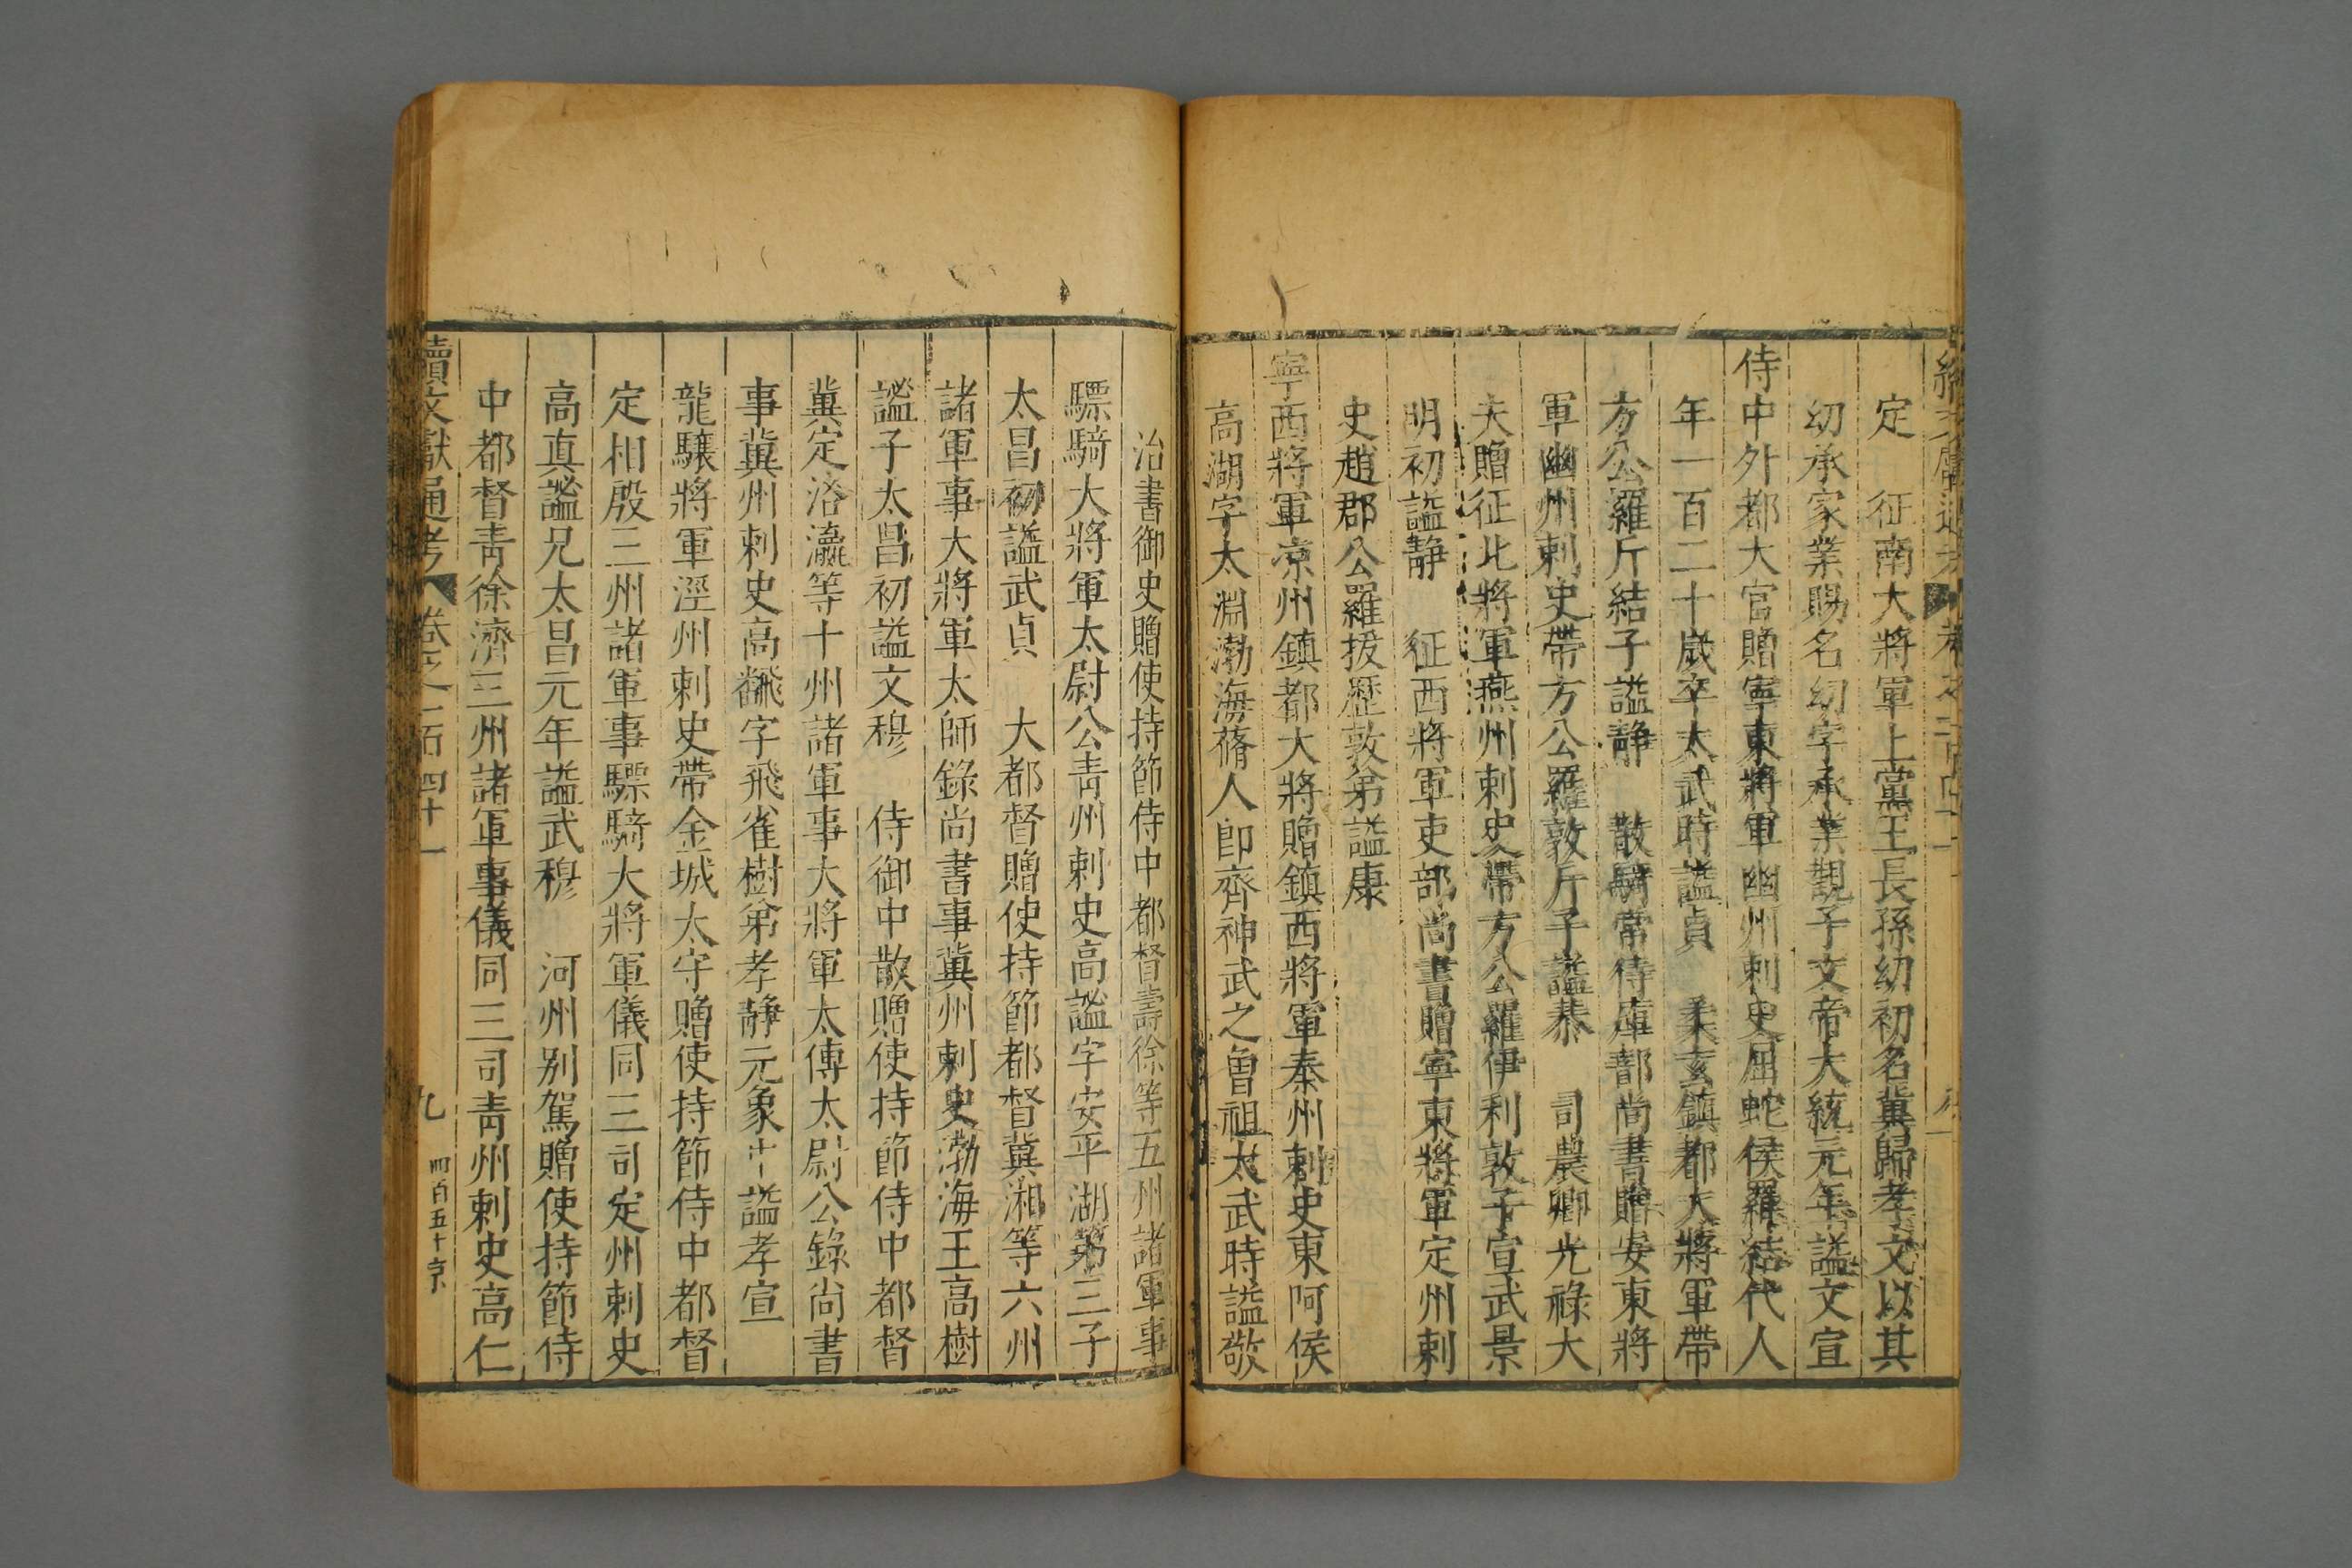 定　征南大將軍上黨王長孫幼初名冀歸孝文以其
幼承家業賜名幼字承業觀子文帝大統元年謚文宣
侍中外都大官贈寧東將軍幽州刺史屈蛇侯羅結代人
年一百二十歲卒太武時謚貞　柔玄鎮都大將軍帶
方公羅斤結子謚靜　散騎常侍庫部尚書贈安東將
軍幽州刺史帶方公羅敦斤子謚恭　司農卿光祿大
夫贈征北將軍燕州刺史帶方公羅伊利敦子宣武景
明初謚靜　征西將軍吏部尚書贈寧東將軍定州刺
史趙郡公羅拔歷敦弟謚康
寧西將軍凉州鎮都大將贈鎮西將軍秦州刺史東阿侯
高湖字太淵渤海蓨人卽齊神武之曾祖太武時謚敬
治書御史贈使持節侍中都督壽徐等五州諸軍事
驃騎大將軍太尉公青州刺史高謐字安平湖第三子
太昌初謚武貞　大都督贈使持節都督冀湘等六州
諸軍事大將軍太師錄尚書事冀州刺史渤海王高樹
謐子太昌初謚文穆　侍御中散贈使持節侍中都督
冀定洛瀛等十州諸軍事大將軍太傅太尉公錄尚書
事冀州刺史高飜字飛雀樹弟孝靜元象中謚孝宣
龍驤將軍涇州刺史帶金城太守贈使持節侍中都督
定相殷三州諸軍事驃騎大將軍儀同三司定州刺史
高真謐兄太昌元年謚武穆　河州别駕贈使持節侍
中都督青徐濟三州諸軍事儀同三司青州刺史高仁
續文獻通考　卷之二百四十一　九　四百五十京